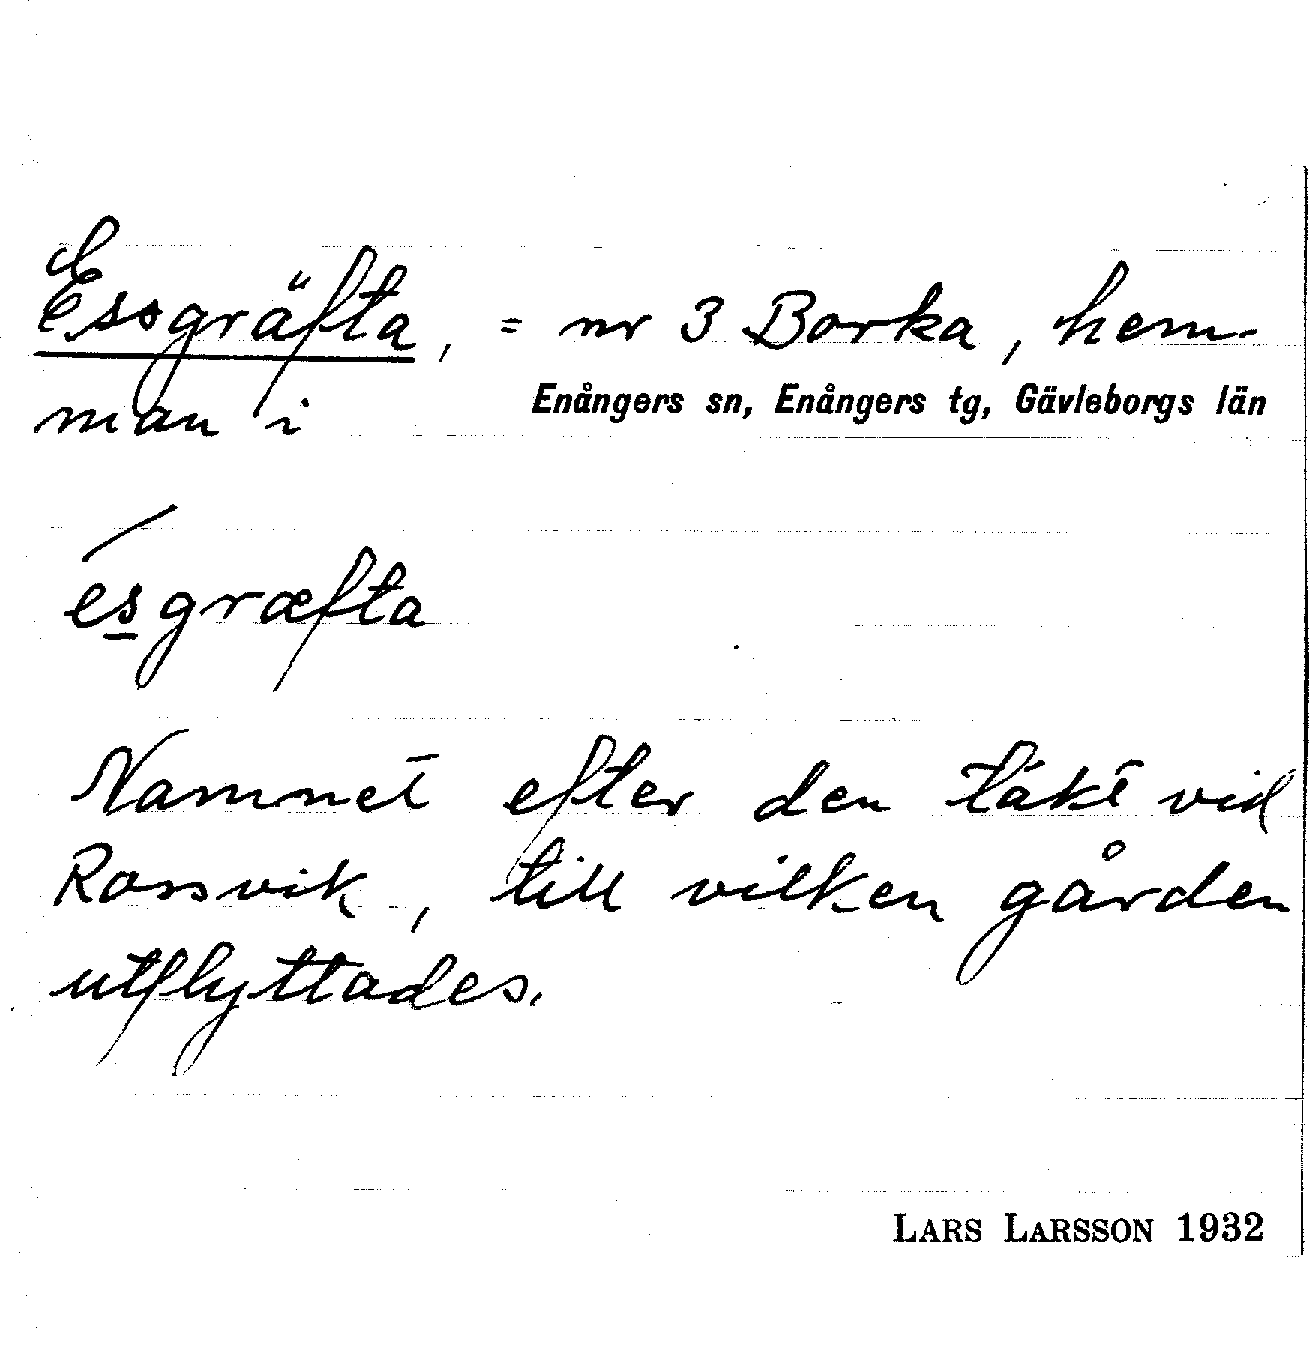 Essgräfta, = nr 3 Borka, hem-
man i Enångers sn, Enångers tg, Gävleborgs län
ésgræfta
Namnet efter den täkt vid
Rossvik, till vilken gården
utflyttades.
LARS LARSSON 1932